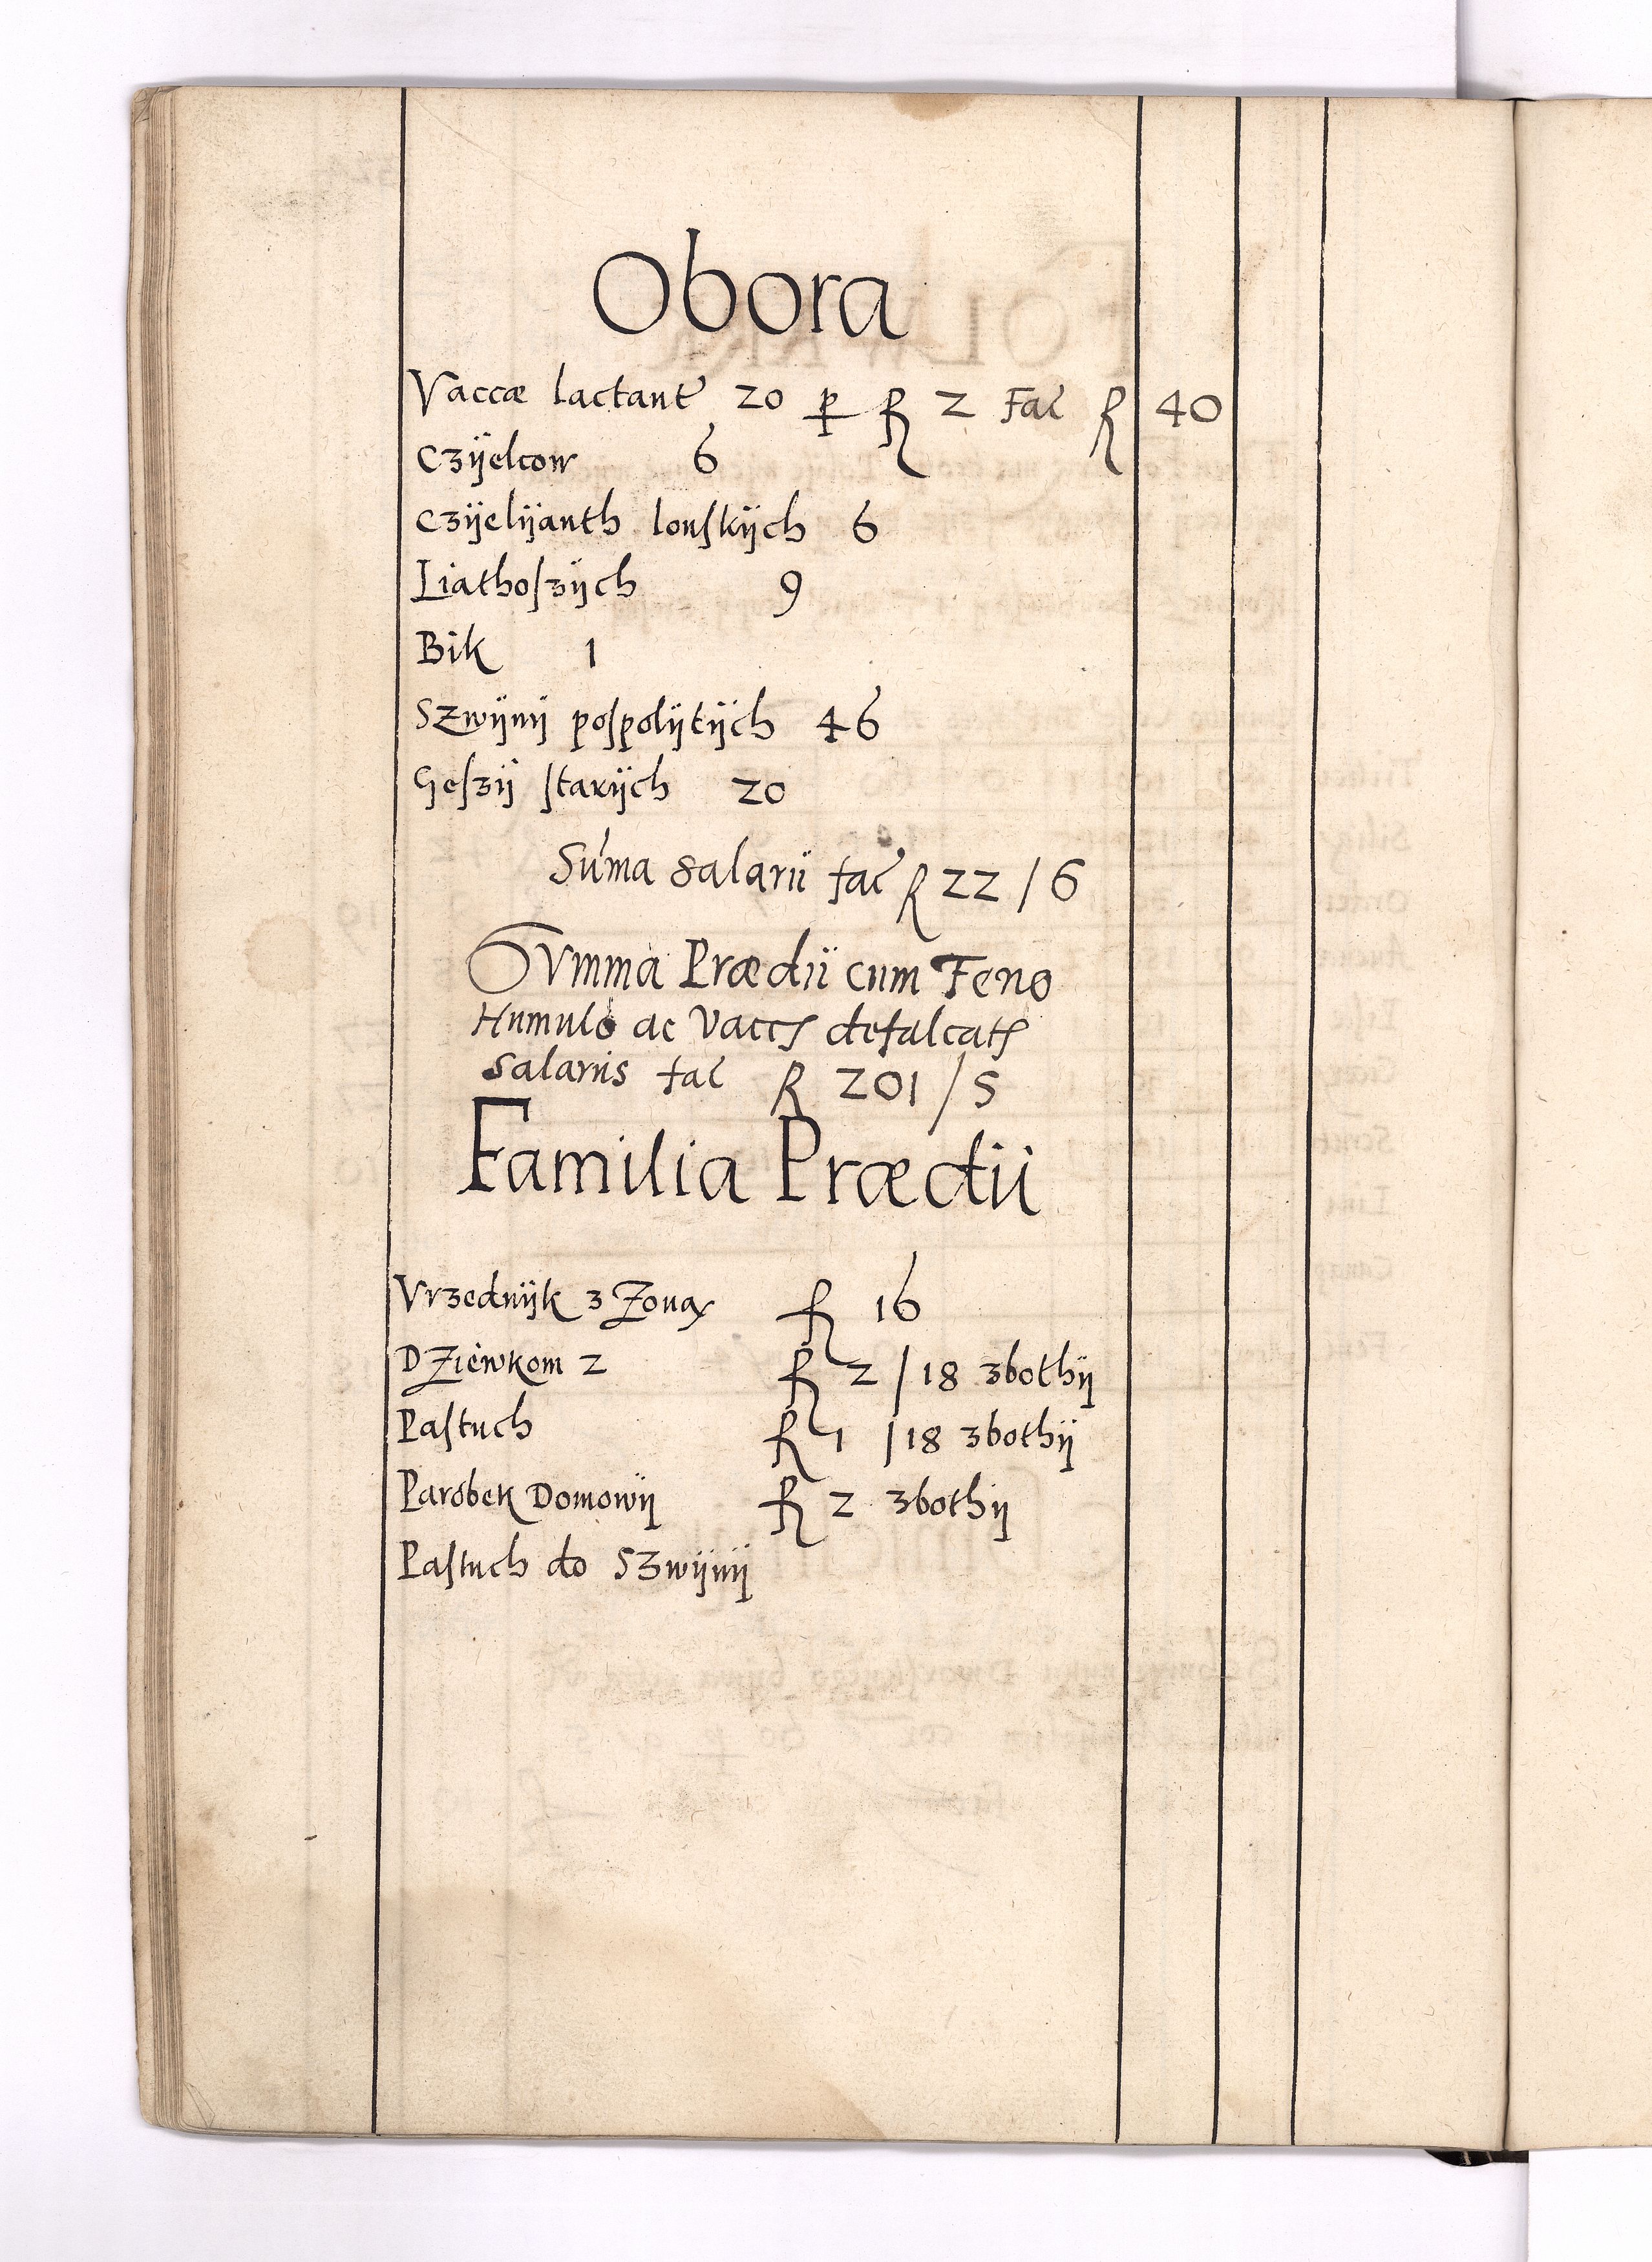 Obora
Vaccæ lactant 20 p fl 2 Fac fl 40
Czÿelcow 6
Czÿelÿanth lonſkÿch 6
Liathoſzÿch 9
Bik 1
Szwÿnÿ poſpolÿtÿch 46
Geſzÿ ſtarÿch 20
Suma salarii fac fl 22 / 6
Summa Prædii cum Feno
Humulo ac Vaccs defalcats
salariis fac fl 201 / 5
Familia Prædii
Vrzednÿk z Zoną fl 16
DZiewkom 2 fl 2 / 18 zbothÿ
Paſtuch fl 1 / 18 zbothÿ
Parobek Domowÿ fl 2 zbothÿ
Paſtuch do Szwÿnÿ